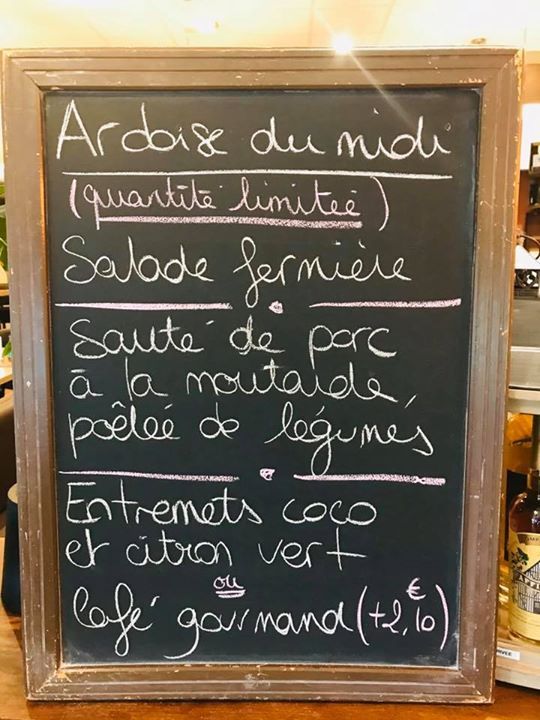 Ardoise du midi
(quantité limitée)
Salade fermière
Sauté de porc
à la moutarde,
poêlée de légumes
Entremets coco
et citron vert
ou
Café gourmand (+2,10€)